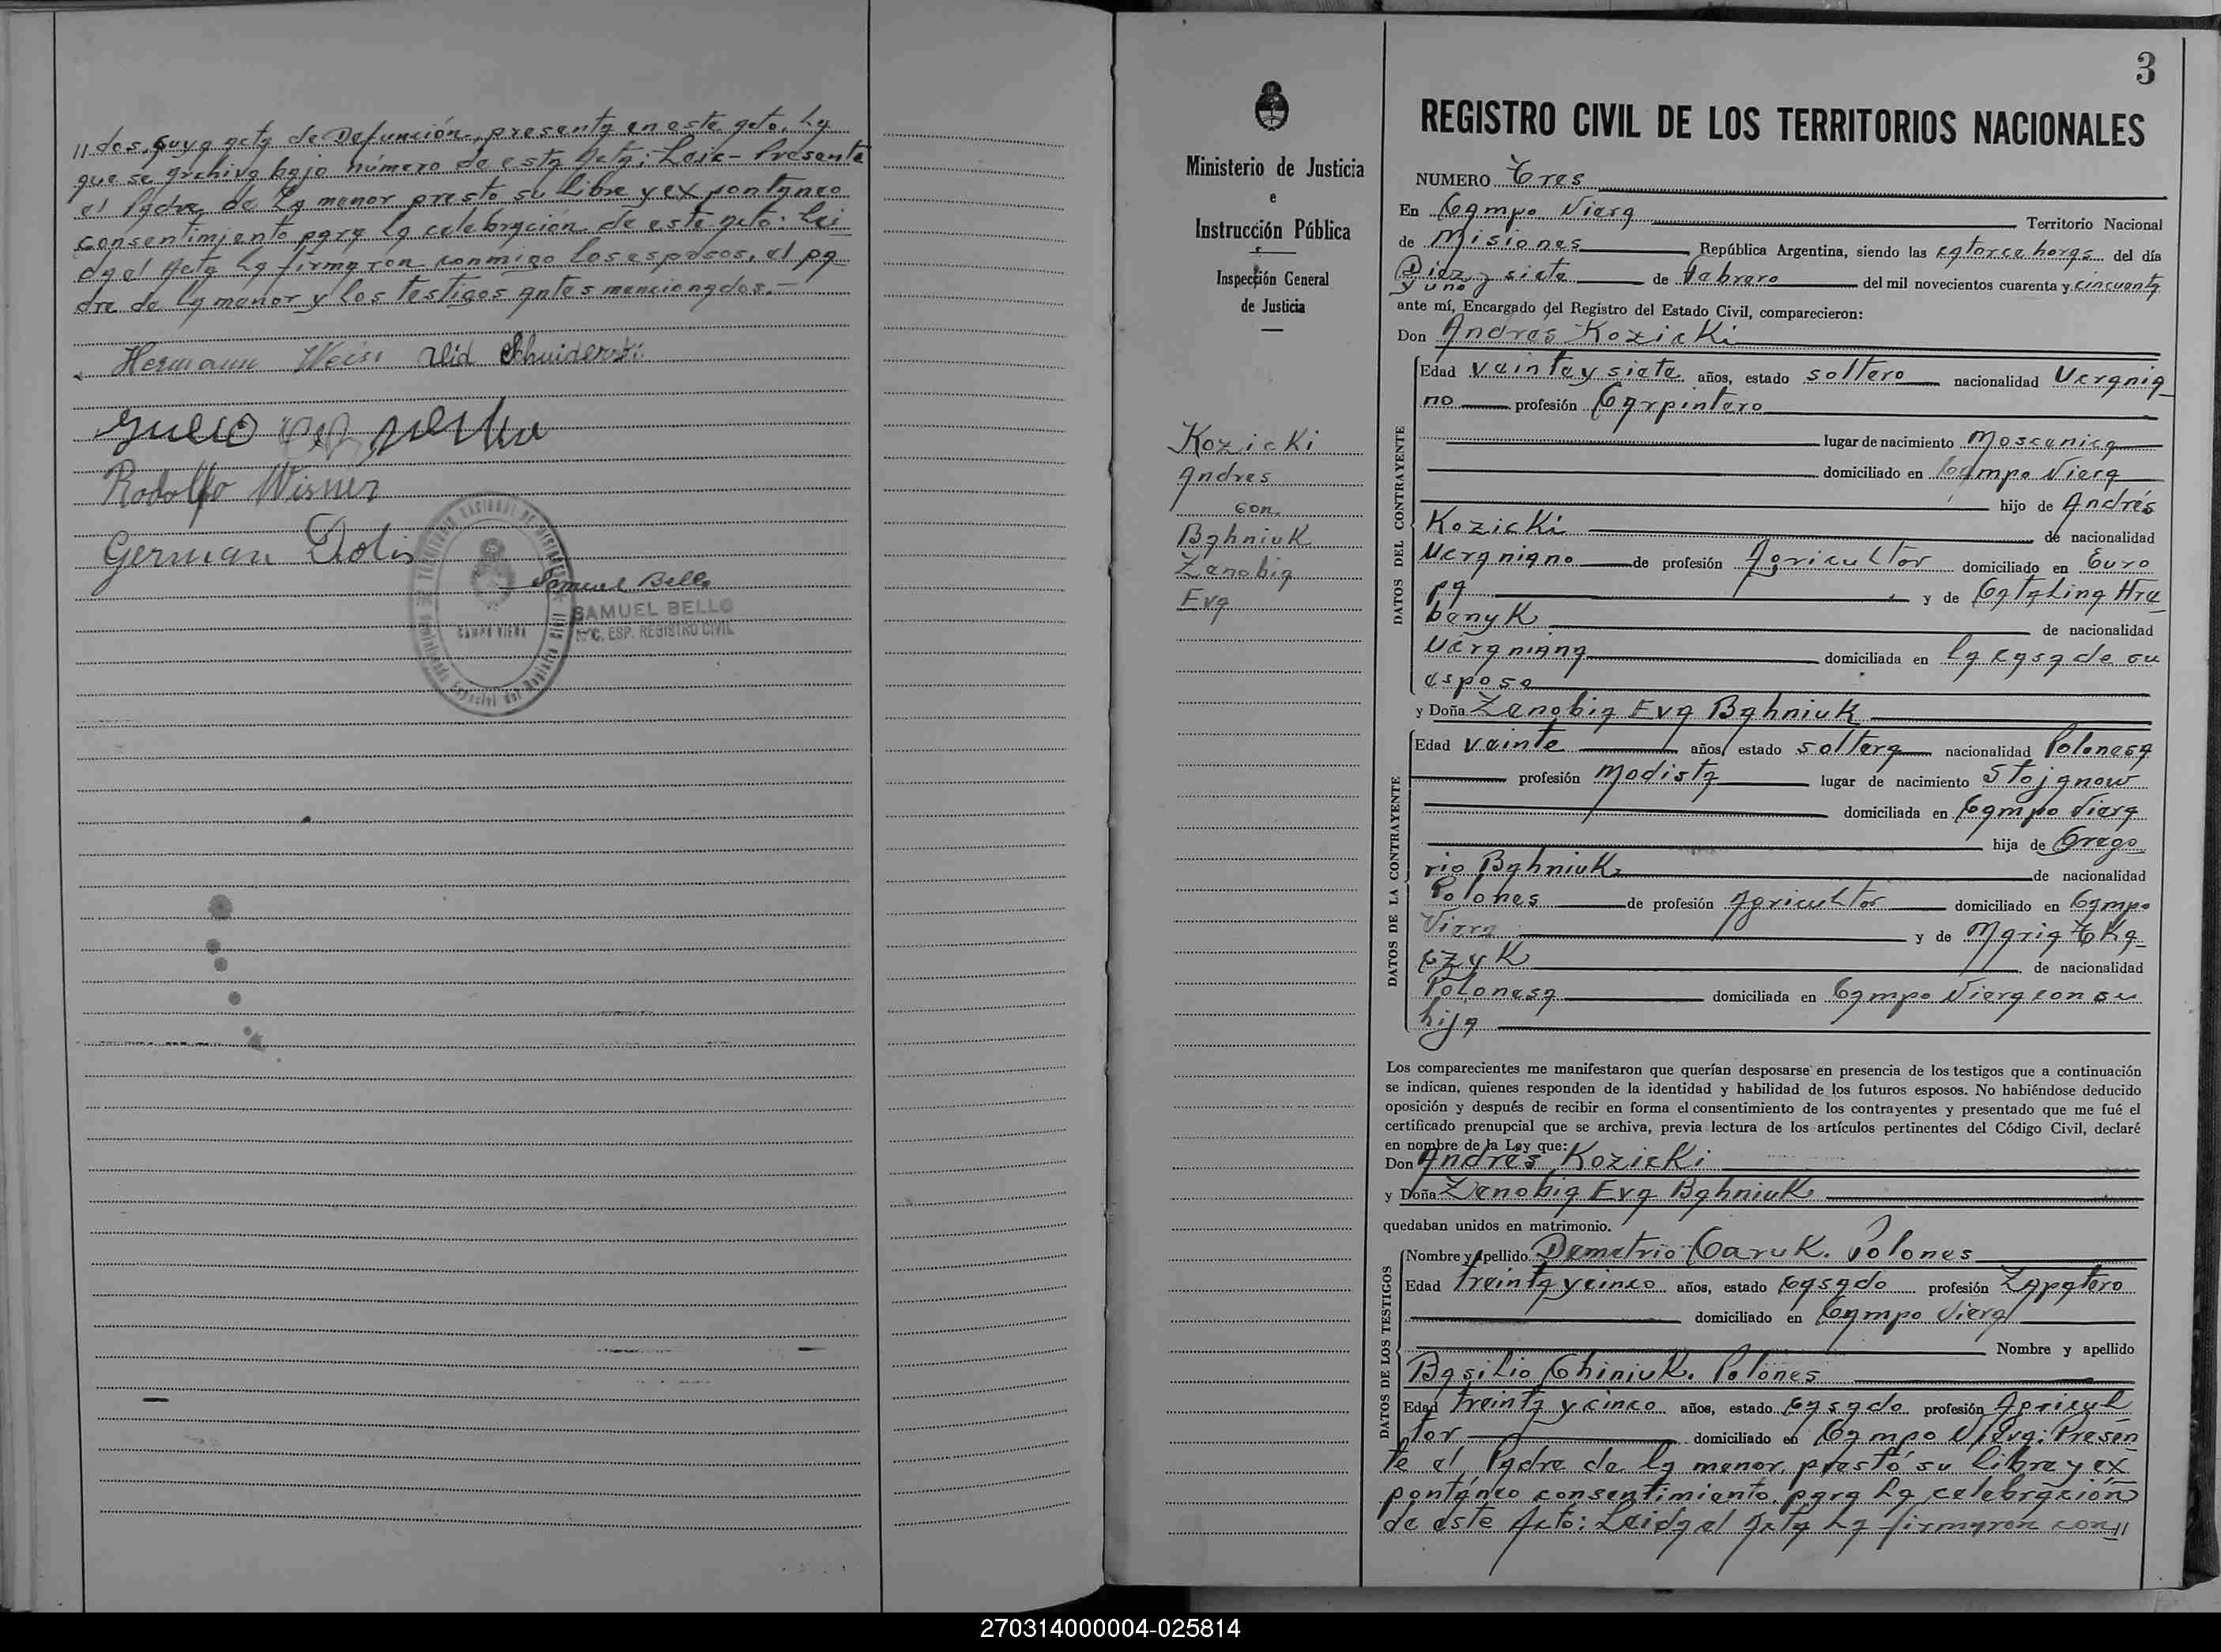 // dos, cuya acta de Defunción, presenta en este acto. La
que se archiva bajo número de esta Acta: Leia- Presente
el Padre, de La menor presto su libre y expontaneo
consentimiento para la celebración de este acto: Lei
da el Acta La firmaron conmigo los esposos, el pa
dre de la menor y los testigos antes mencionados.-
Hermann Weiss
Rodolfo Wisner
German Dolis
Samuel Bello
SAMUEL BELLO
ESP. REGISTRO CIVIL
CAMPO VIERA
3
Ministerio de Justicia
e
Instrucción Pública
Inspección General
de Justicia
Kozicki
Andres
con
Bahniuk
Zenobia
Eva
REGISTRO CIVIL DE LOS TERRITORIOS NACIONALES
NUMERO Tres
En Campo Viera Territorio Nacional
de Misiones República Argentina, siendo las catorce horas del día
Diez y siete de febrero del mil novecientos cuarenta y cincuenta
y uno
ante mí, Encargado del Registro del Estado Civil, comparecieron:
Don Andres Kozicki
DATOS DEL CONTRAYENTE
Edad veinte y siete años, estado soltero nacionalidad Ucrania
no profesión Carpintero
lugar de nacimiento Moscanica
domiciliado en Campo Viera
hijo de Andrés
Kozicki de nacionalidad
Ucraniano de profesión Agricultor domiciliado en Euro
pa y de Catalina Hra
banyk de nacionalidad
Ucraniana domiciliada en la casa de su
esposo
y Doña Zenobia Eva Bahniuk
DATOS DE LA CONTRAYENTE
Edad veinte años, estado soltera nacionalidad Polonesa
profesión Modista lugar de nacimiento Stojanow
domiciliada en Campo Viera
hija de Grego
rio Bahniuk de nacionalidad
Polones de profesión Agricultor domiciliado en Campo
Viera y de Maria Tka
czyk de nacionalidad
Polonesa domiciliada en Campo Viera con su
hija
Los comparecientes me manifestaron que querían desposarse en presencia de los testigos que a continuación
se indican, quienes responden de la identidad y habilidad de los futuros esposos. No habiéndose deducido
oposición y después de recibir en forma el consentimiento de los contrayentes y presentado que me fué el
certificado prenupcial que se archiva, previa lectura de los artículos pertinentes del Código Civil, declaré
en nombre de la Ley que:
Don Andres Kozicki
y Doña Zenobia Eva Bahniuk
quedaban unidos en matrimonio.
DATOS DE LOS TESTIGOS
Nombre y Apellido Demetrio Caruk. Polones
Edad treinta y cinco años, estado Casado profesión Zapatero
domiciliado en Campo Viera
Nombre y apellido
Basilio Chiniuk. Polones
Edad treinta y cinco años, estado Casado profesión Agricul
tor domiciliado en Campo Viera: Presen
te el Padre de la menor, prestó su libre y ex
pontáneo consentimiento, para La celebración
de este Acto: Leida el Acta La firmaron con//
270314000004-025814